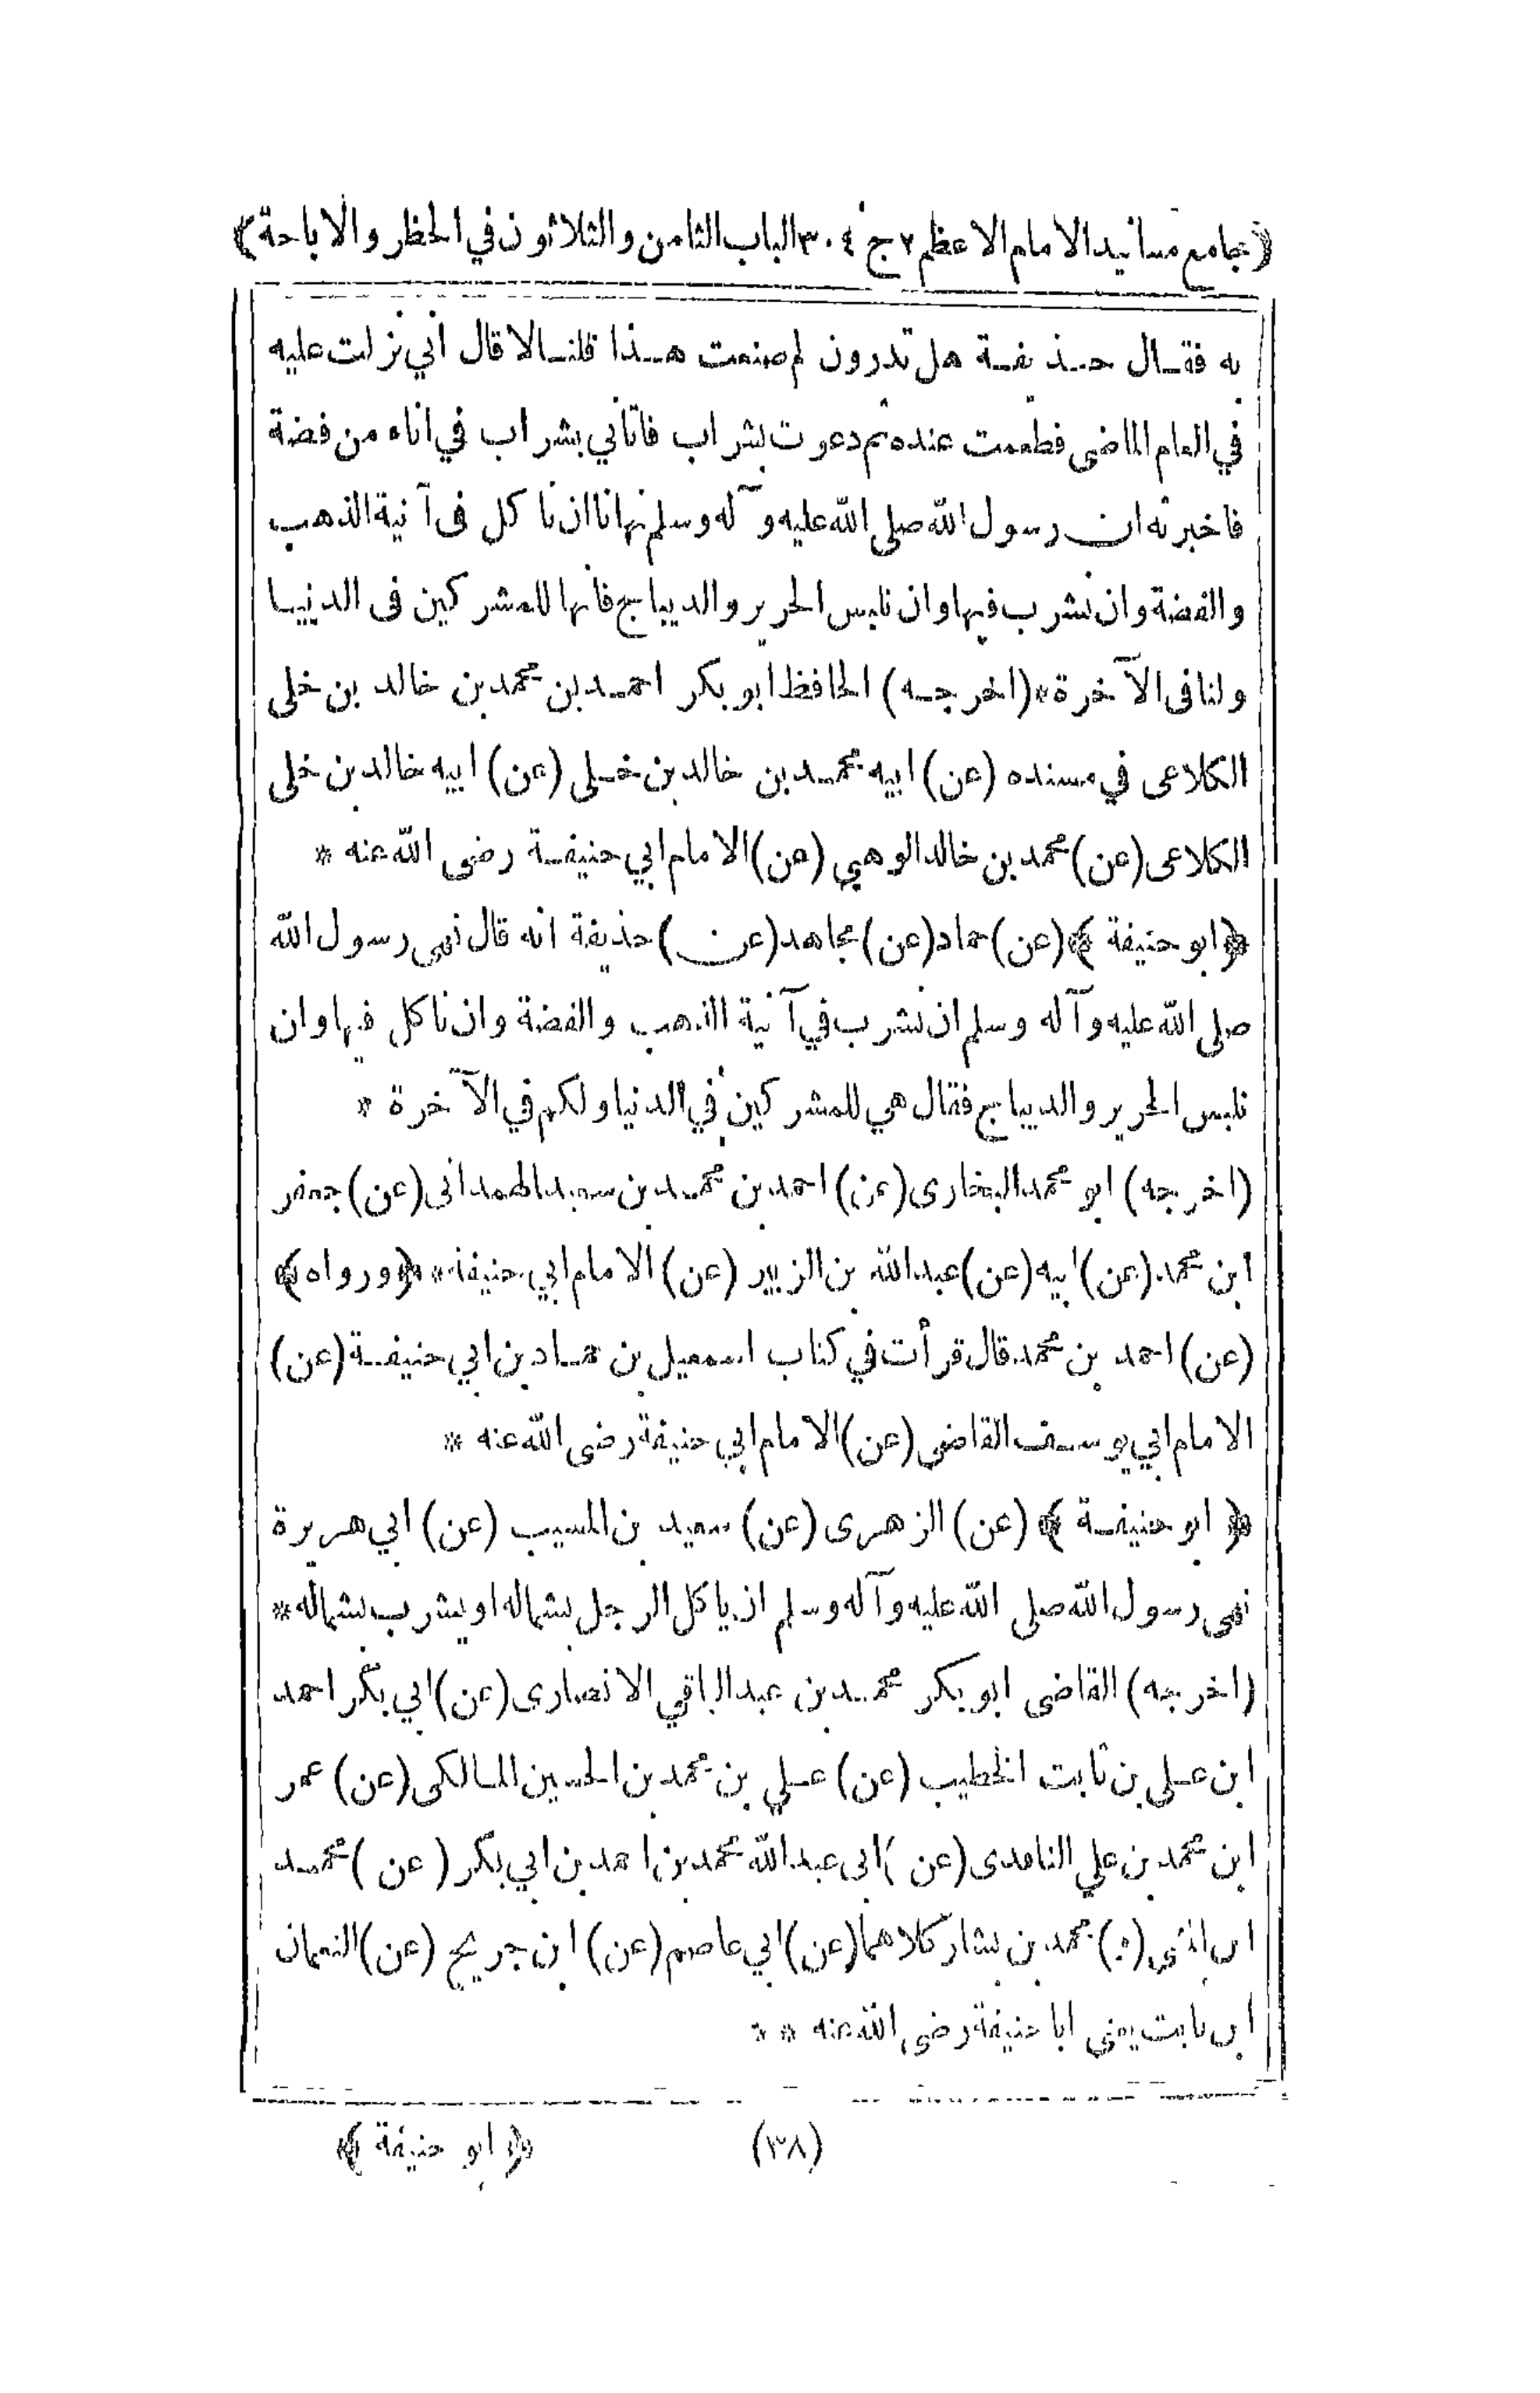 ﴿جامع مسانيد الامام الاعظم ٢ ج ٣٠٤ الباب الثامن والثلاثون في الحظر والاباحة﴾
به فقال حذيفة هل تدرون لم صنعت هذا قلنا لا قال اني نزلت عليه
في العام الماضى فطعمت عنده ثم دعوت بشراب فاتاني بشراب في اناء من فضة
فاخبرته ان رسول الله صلى الله عليه وآله وسلم نهانا ان ناكل فى آنية الذهب
والفضة وان نشرب فيها وان نلبس الحرير والديباج فانها للمشركين فى الدنيا
ولنا فى الآخرة * (اخرجه) الحافظ ابو بكر احمد بن محمد بن خالد بن خلى
الكلاعى في مسنده (عن) ابيه محمد بن خالد بن خلى (عن) ابيه خالد بن خلى
الكلاعى (عن) محمد بن خالد الوهبي (عن) الامام ابي حنيفة رضى الله عنه *
﴿ابو حنيفة﴾ (عن) حماد (عن) مجاهد (عن) حذيفة انه قال نهى رسول الله
صلى الله عليه وآله وسلم ان نشرب في آنية الذهب والفضة وان ناكل فيها وان
نلبس الحرير والديباج فقال هي للمشركين في الدنيا ولكم في الآخرة *
(اخرجه) ابو محمد البخارى (عن) احمد بن محمد بن سعيد الهمدانى (عن) جعفر
ابن محمد (عن) ابيه (عن) عبد الله بن الزبير (عن) الامام ابي حنيفة * ﴿ورواه﴾
(عن) احمد بن محمد قال قرأت في كتاب اسمعيل بن حماد بن ابي حنيفة (عن)
الامام ابي يوسف القاضى (عن) الامام ابي حنيفة رضى الله عنه *
﴿ابو حنيفة﴾ (عن) الزهرى (عن) سعيد بن المسيب (عن) ابي هريرة
نهى رسول الله صلى الله عليه وآله وسلم ان ياكل الرجل بشماله او يشرب بشماله *
(اخرجه) القاضى ابو بكر محمد بن عبد الباقي الانصارى (عن) ابي بكر احمد
ابن على بن ثابت الخطيب (عن) علي بن محمد بن الحسين المالكى (عن) عمر
ابن محمد بن علي الناهدى (عن) ابى عبد الله محمد بن احمد بن ابي بكر (عن) محمد
ابن المثنى (و) محمد بن بشار كلاهما (عن) ابي عاصم (عن) ابن جريج (عن) النعمان
ابن ثابت يعنى ابا حنيفة رضى الله عنه * *
(٣٨) ﴿ابو حنيفة﴾